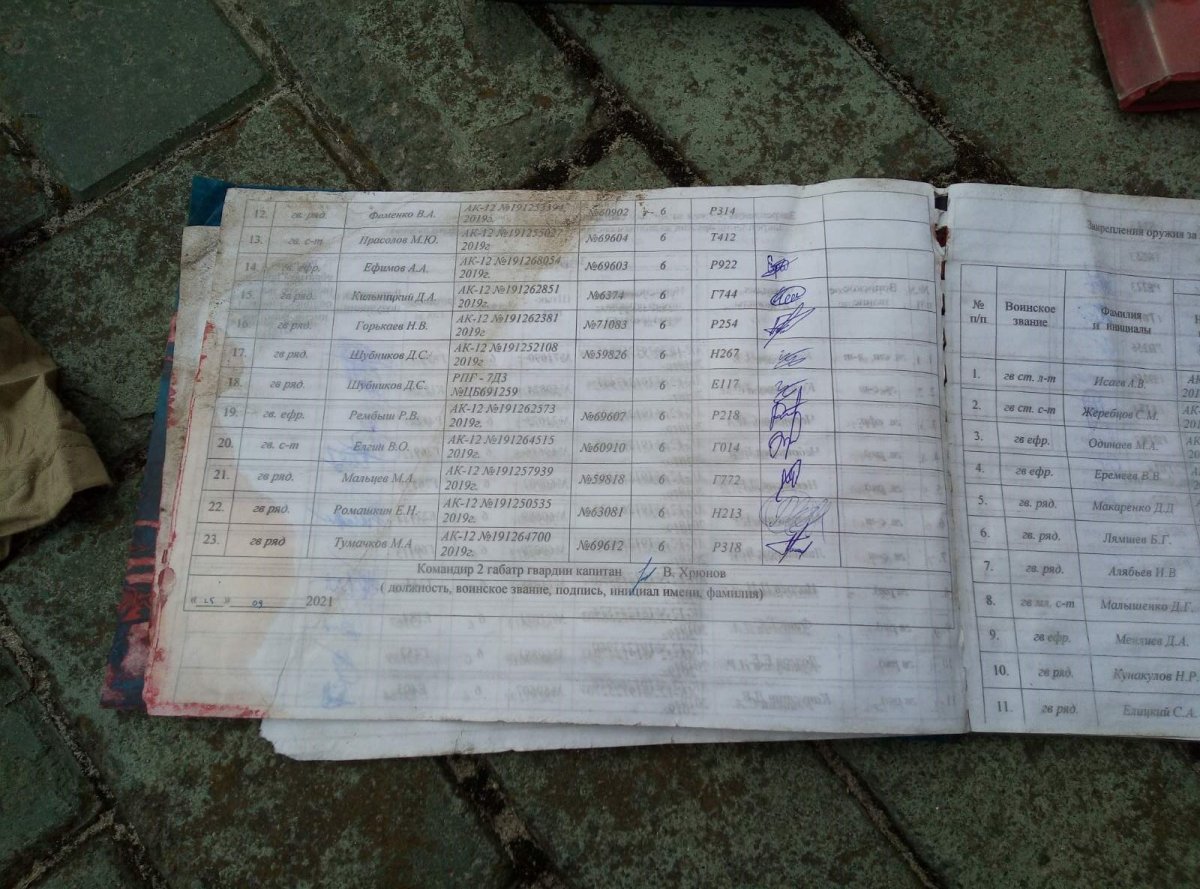 12. гв. ряд. Фоменко В.А. АК-12 №191253394 2019г. №60902 6 Р314
13. гв. с-т Нрасолов М.Ю. АК-12 №191255027 2019г. №69604 6 Т412
14. гв. ефр. Ефимов А.А. АК-12 №191268054 2019г. №69603 6 Р922
15. гв ряд. Кильницкий Д.А. АК-12 №191262851 2019г. №6374 6 Г744
16. гв ряд. Горькаев Н.В. АК-12 №191262381 2019г. №71083 6 Р254
17. гв ряд. Шубников Д.С. АК-12 №191252108 2019г. №59826 6 Н267
18. гв ряд. Шубников Д.С. РПГ - 7Д3 №ЦБ691259 6 Е117
19. гв. ефр. Рембыш Р.В. АК-12 №191262573 2019г. №69607 6 Р218
20. гв. с-т Елгин В.О. АК-12 №191264515 2019г. №60910 6 Г014
21. гв ряд. Мальцев М.А. АК-12 №191257939 2019г. №59818 6 Г772
22. гв ряд. Ромашкин Е.Н. АК-12 №191250535 2019г. №63081 6 Н213
23. гв ряд Тумачков М.А АК-12 №191264700 2019г. №69612 6 Р318
Командир 2 габатр гвардии капитан В. Хрюнов
( должность, воинское звание, подпись, инициал имени, фамилия)
« 25 » 09 2021
Закрепления оружия за
№ п/п Воинское звание Фамилия и инициалы
1. гв ст. л-т Исаев А.В.
2. гв ст. с-т Жеребцов С.М.
3. гв ефр. Одинаев М.А.
4. гв ефр. Еремеев В.В
5. гв. ряд. Макаренко Д.Д
6. гв. ряд. Лямшев Б.Г.
7. гв. ряд. Алябьев И.В
8. гв мл. с-т Малышенко Д.Г.
9. гв ефр. Менлиев Д.А.
10. гв ряд. Кунакулов Н.Р.
11. гв ряд. Елицкий С.А.